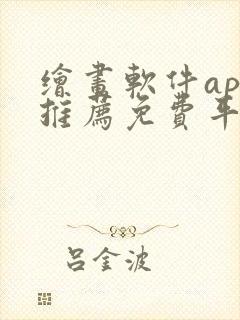 繪畫軟件ap
推薦免費平
呂金波